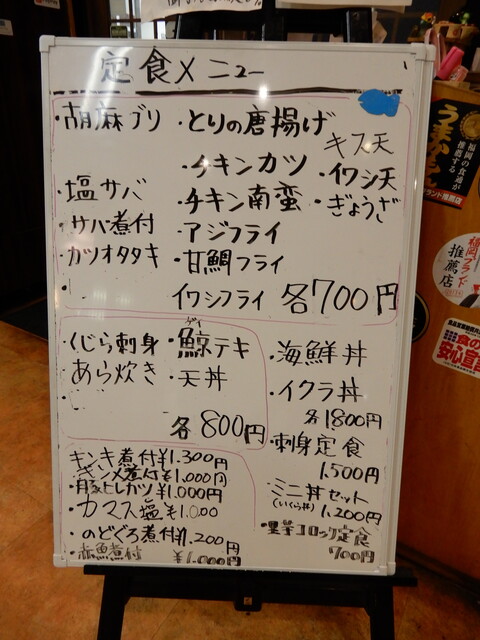 定食メニュー
・胡麻ブリ
・塩サバ
サバ煮付
カツオタタキ
・とりの唐揚げ
・チキンカツ
・チキン南蛮
・アジフライ
・甘鯛フライ
イワシフライ
キス天
・イワシ天
・ぎょうざ
各700円
くじら刺身
あら炊き
・鯨テキ
・天丼
各800円
・海鮮丼
・イクラ丼
各1800円
・刺身定食
1,500円
・ミニ丼セット
(いくら丼)
1,200円
・里芋コロッケ定食
700円
キンキ煮付¥1.300円
キンメ煮付¥1,000円
・豚ヒレカツ¥1.000円
・カマス塩¥1.000
・のどぐろ煮付¥1.200円
・赤魚煮付 ¥1.000円
うまかもん
福岡の食通が推薦する
推薦店
福岡ブランド
推薦店
食の
安心宣言